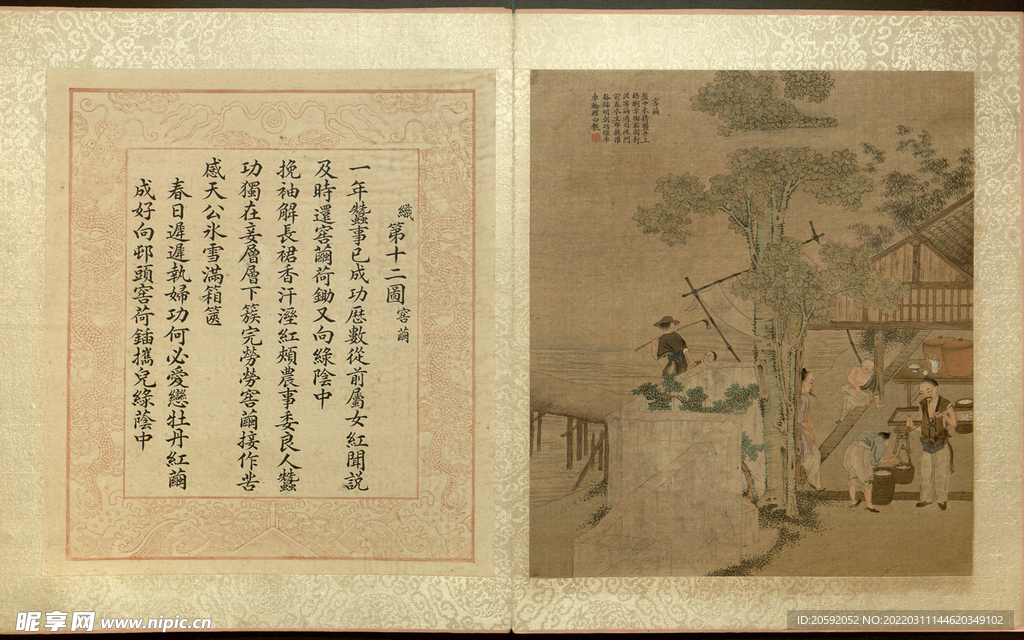 織 第十二圖 窖繭
一年蠶事已成功歷數從前屬女紅聞説
及時還窖繭荷鋤又向綠陰中
挽袖解長裙香汗溼紅頰農事委良人蠶
功獨在妾層層下簇完勞勞窖繭接作苦
感天公氷雪滿箱篋
春日遲遲執婦功何必愛戀牡丹紅繭
成好向邨頭窖荷鍤攜兒綠蔭中
窖繭
昵享网 www.nipic.cn
ID:20592052 NO:20220311144620349102